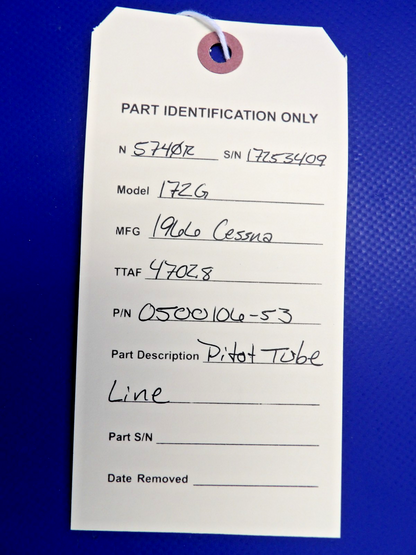 PART IDENTIFICATION ONLY
N 5740R S/N 17253409
Model 172G
MFG 1966 Cessna
TTAF 4702.8
P/N 0500106-53
Part Description Pitot Tube
Line
Part S/N
Date Removed